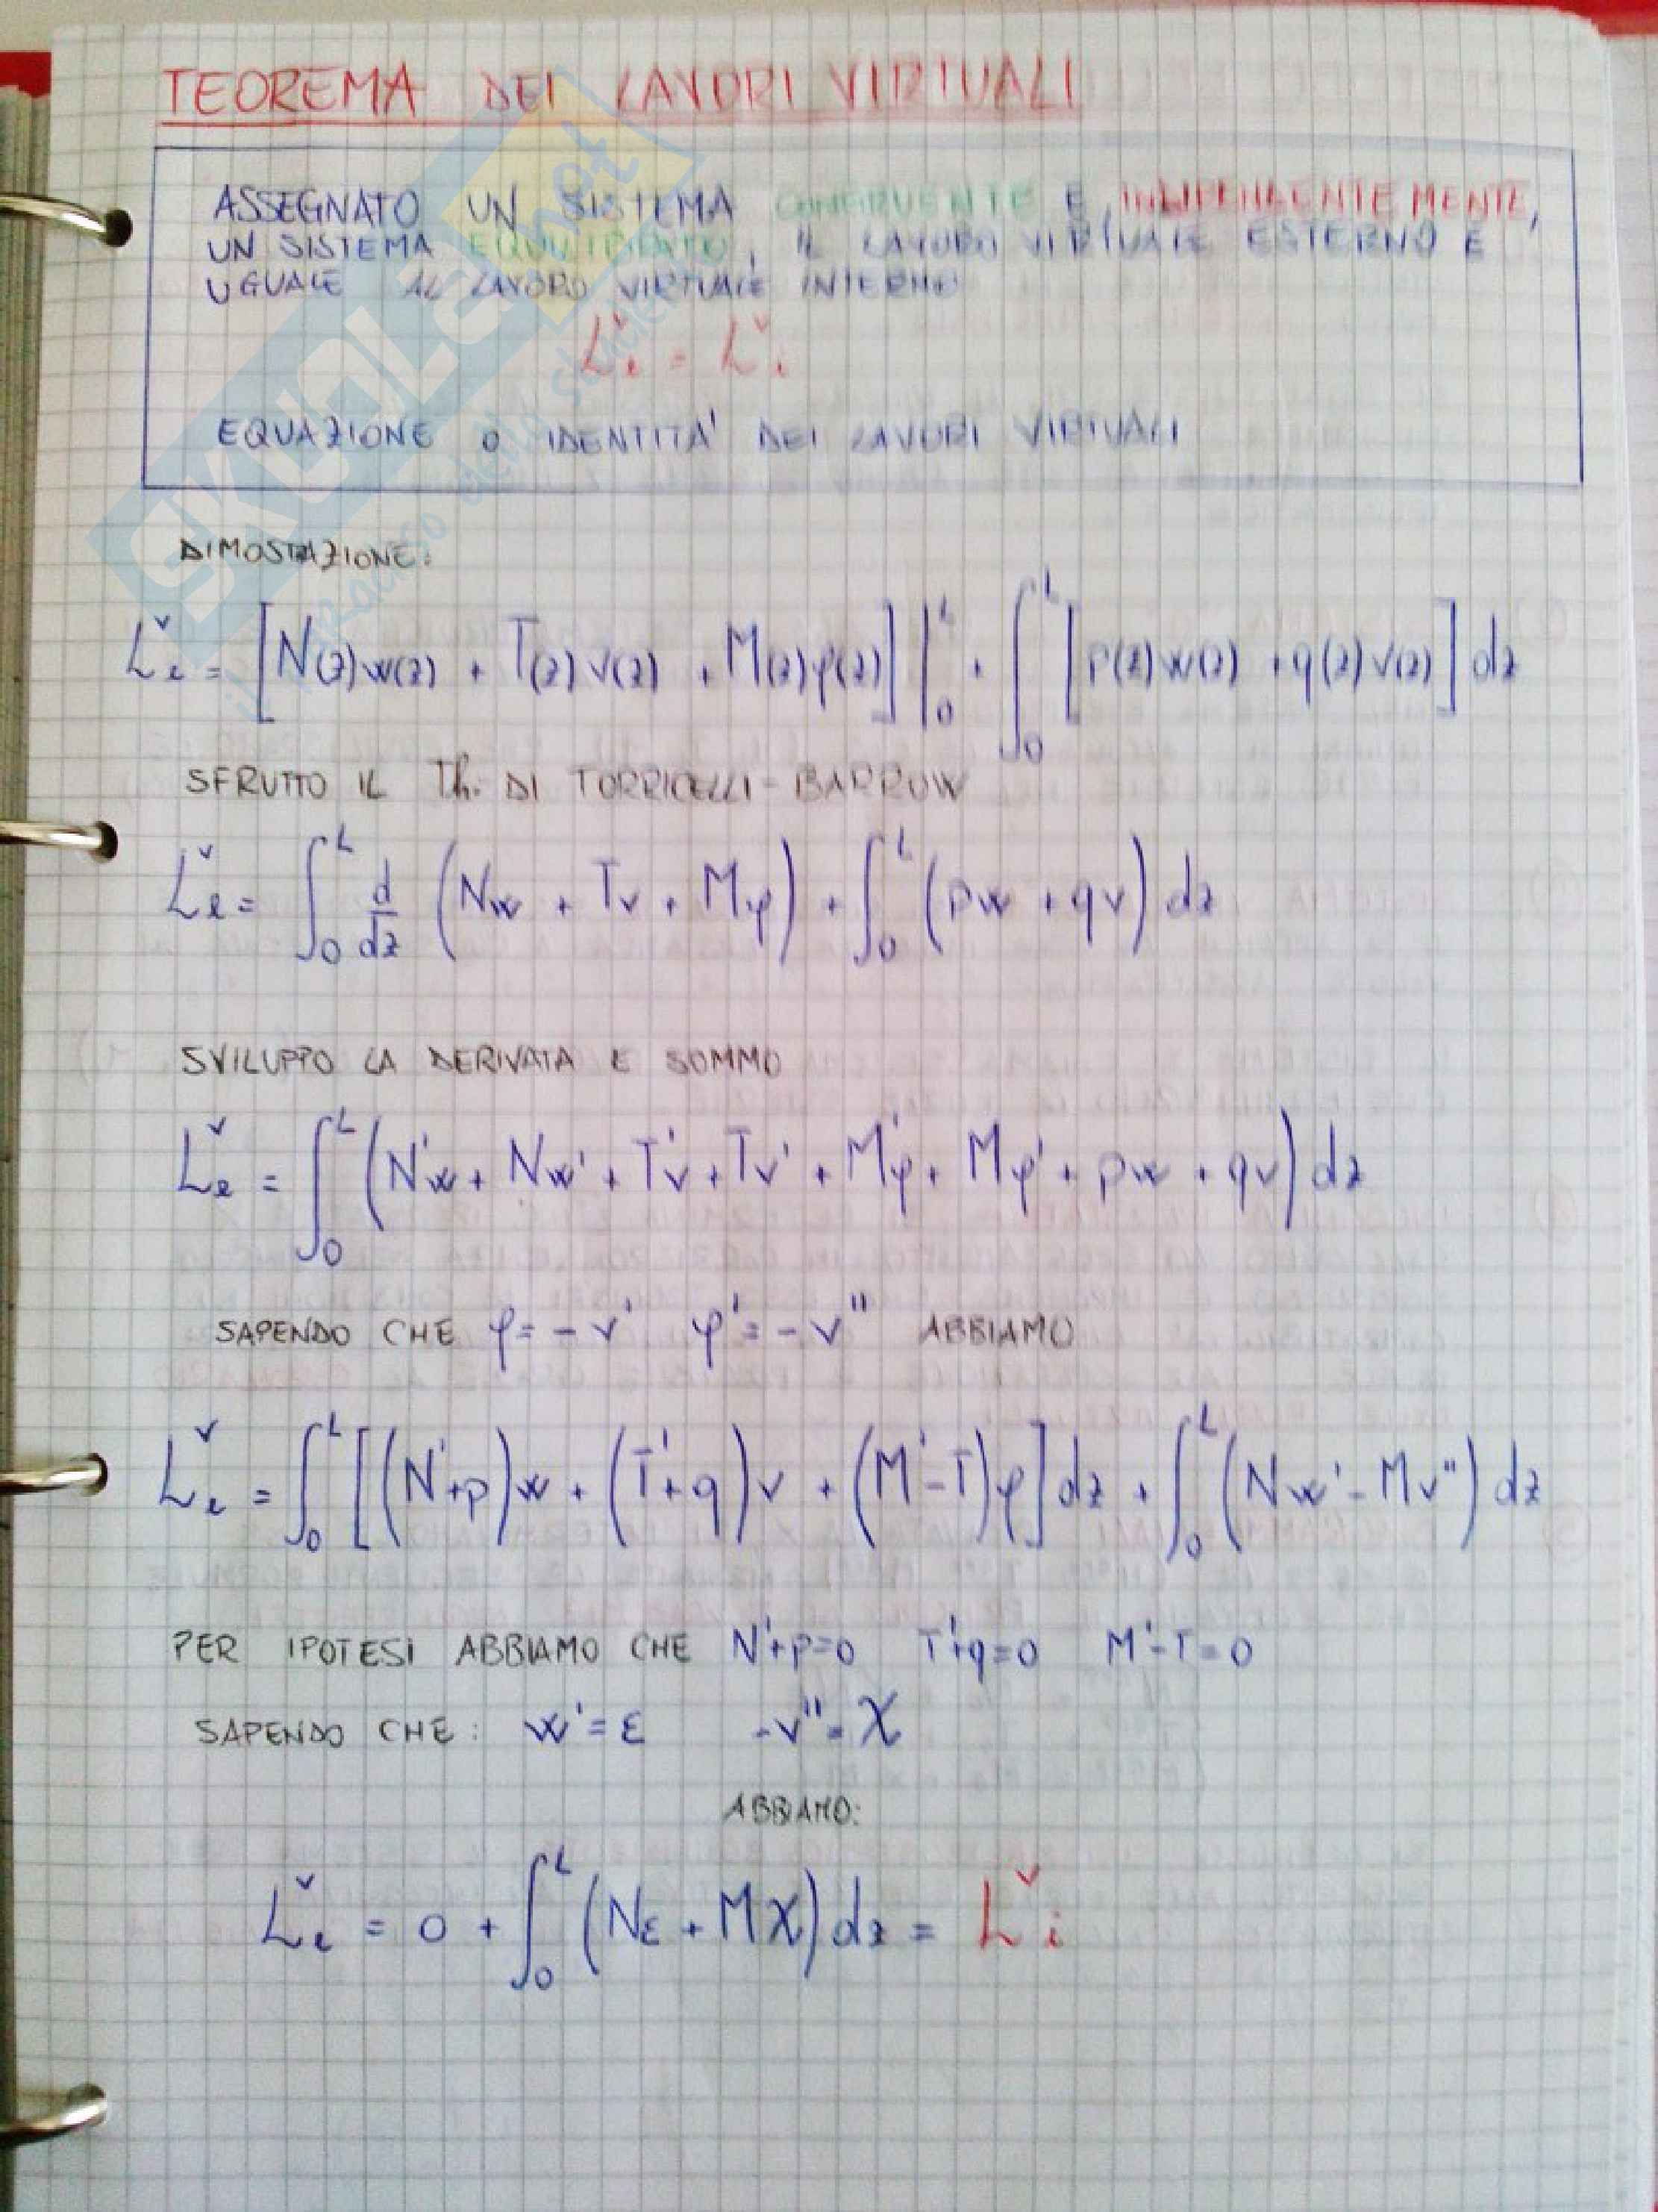 TEOREMA DEI LAVORI VIRTUALI
ASSEGNATO UN SISTEMA CONGRUENTE E INDIPENDENTEMENTE,
UN SISTEMA EQUILIBRATO, IL LAVORO VIRTUALE ESTERNO E'
UGUALE AL LAVORO VIRTUALE INTERNO
Lᵛe = Lᵛi
EQUAZIONE O IDENTITA' DEI LAVORI VIRTUALI
DIMOSTAZIONE:
Lᵛe = [N(z)w(z) + T(z)v(z) + M(z)φ(z)]|₀ᴸ + ∫₀ᴸ [p(z)w(z) + q(z)v(z)] dz
SFRUTTO IL Th. DI TORRICELLI-BARROW
Lᵛe = ∫₀ᴸ d/dz (Nw + Tv + Mφ) + ∫₀ᴸ (pw + qv) dz
SVILUPPO LA DERIVATA E SOMMO
Lᵛe = ∫₀ᴸ (N'w + Nw' + T'v + Tv' + M'φ + Mφ' + pw + qv) dz
SAPENDO CHE φ = -v' φ' = -v'' ABBIAMO
Lᵛe = ∫₀ᴸ [(N'+p)w + (T'+q)v + (M'-T)φ] dz + ∫₀ᴸ (Nw' - Mv'') dz
PER IPOTESI ABBIAMO CHE N'+p=0 T'+q=0 M'-T=0
SAPENDO CHE: w'=ε -v''=χ
ABBIAMO:
Lᵛe = 0 + ∫₀ᴸ (Nε + Mχ) dz = Lᵛi
SKUOLA.net
il paradiso dello studente